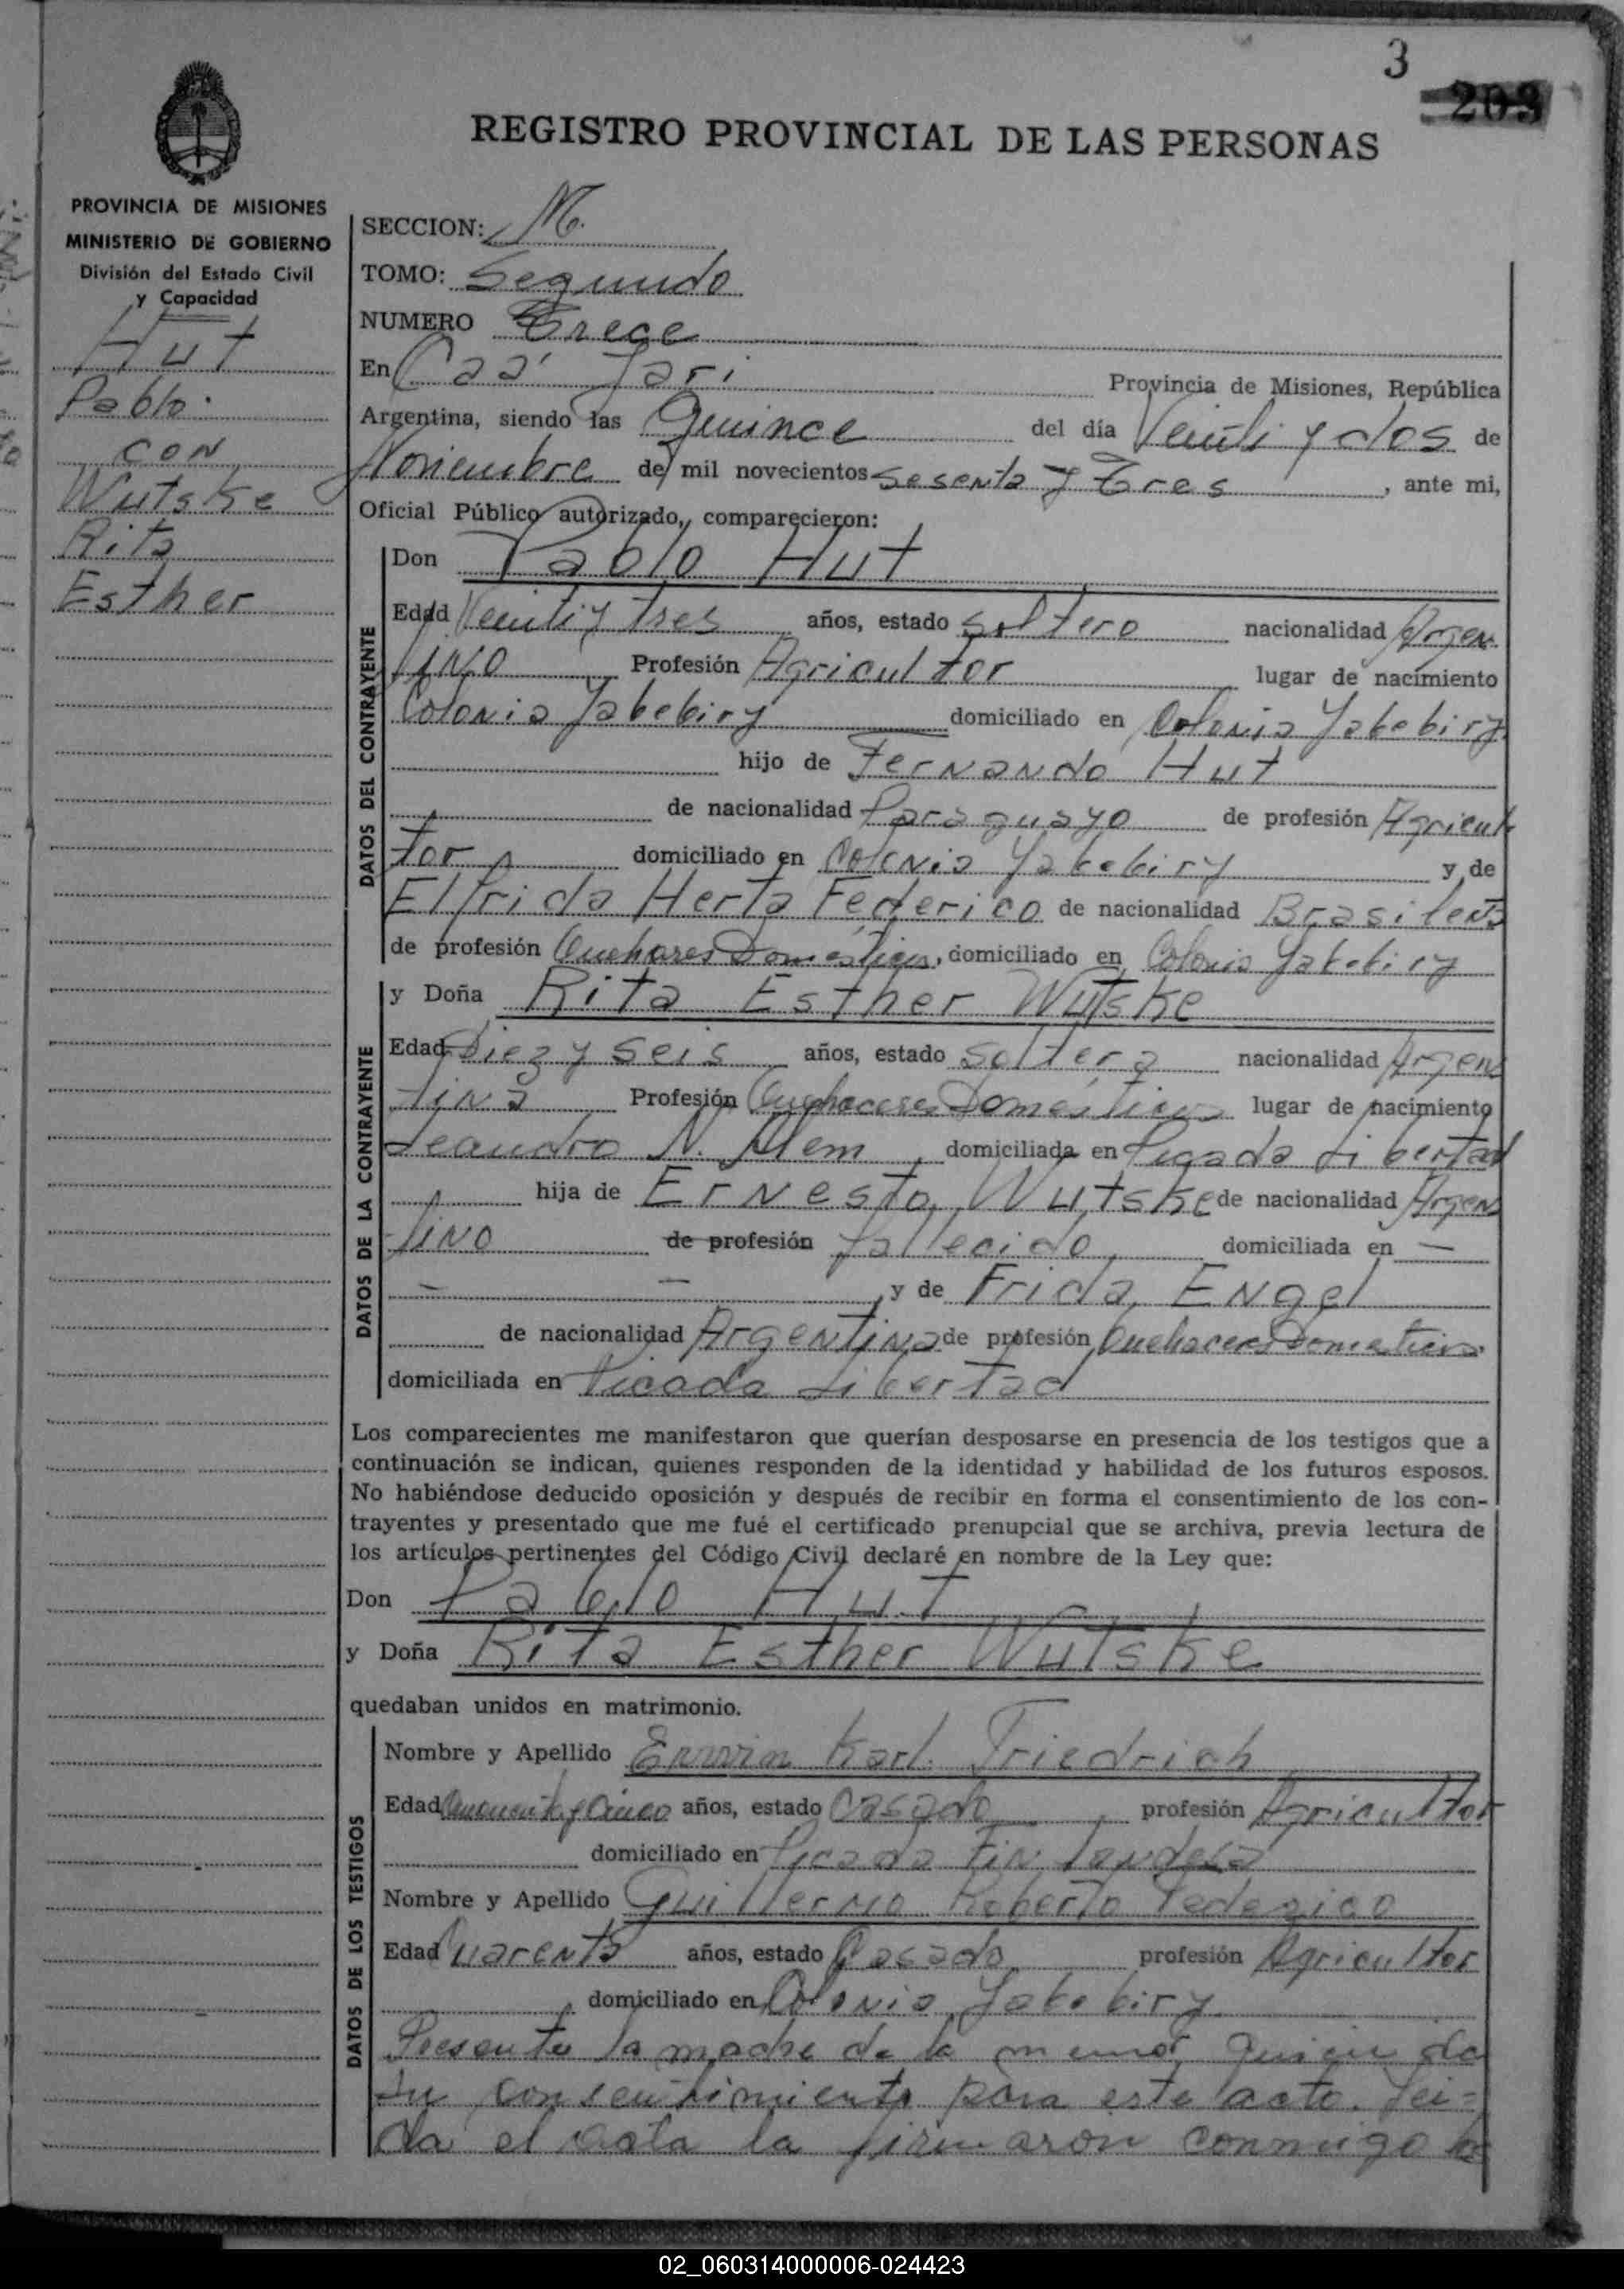 3
203
REGISTRO PROVINCIAL DE LAS PERSONAS
PROVINCIA DE MISIONES
MINISTERIO DE GOBIERNO
División del Estado Civil
y Capacidad
Hut
Pablo
con
Wutske
Rita
Esther
SECCION: M.
TOMO: Segundo
NUMERO Trece
En Caá Yari Provincia de Misiones, República
Argentina, siendo las Quince del día Veinti y dos de
Noviembre de mil novecientos sesenta y Tres, ante mi,
Oficial Público autorizado, comparecieron:
DATOS DEL CONTRAYENTE
Don Pablo Hut
Edad Veinti y tres años, estado soltero nacionalidad Argen
tino Profesión Agricultor lugar de nacimiento
Colonia Yabebiry domiciliado en Colonia Yabebiry
hijo de Fernando Hut
de nacionalidad Paraguayo de profesión Agricul
tor domiciliado en Colonia Yabebiry y de
Elfrida Herta Federico de nacionalidad Brasileña
de profesión Quehaceres Domésticos, domiciliado en Colonia Yabebiry
DATOS DE LA CONTRAYENTE
y Doña Rita Esther Wutske
Edad Diez y seis años, estado soltera nacionalidad Argen
tina Profesión Quehaceres Domésticos lugar de nacimiento
Leandro N. Alem, domiciliada en Picada Libertad
hija de Ernesto Wutske de nacionalidad Argen
tino de profesión fallecido domiciliada en —
— — y de Frida Engel
de nacionalidad Argentina de profesión Quehaceres Domesticos
domiciliada en Picada Libertad
Los comparecientes me manifestaron que querían desposarse en presencia de los testigos que a
continuación se indican, quienes responden de la identidad y habilidad de los futuros esposos.
No habiéndose deducido oposición y después de recibir en forma el consentimiento de los con-
trayentes y presentado que me fué el certificado prenupcial que se archiva, previa lectura de
los artículos pertinentes del Código Civil declaré en nombre de la Ley que:
Don Pablo Hut
y Doña Rita Esther Wutske
quedaban unidos en matrimonio.
DATOS DE LOS TESTIGOS
Nombre y Apellido Erwin Karl Friedrich
Edad y Cinco años, estado Casado profesión Agricultor
domiciliado en Picada Finlandesa
Nombre y Apellido Guillermo Roberto Federico
Edad Cuarenta años, estado Casado profesión Agricultor
domiciliado en Colonia Yabebiry
Presente la madre de la menor quien da
su consentimiento para este acto. Lei-
da el acta la firmaron conmigo los
02_060314000006-024423